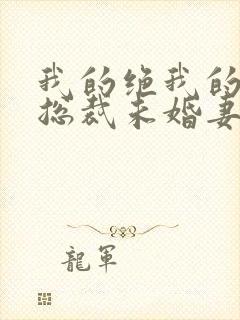 我的绝我的
总裁未婚妻
龍军